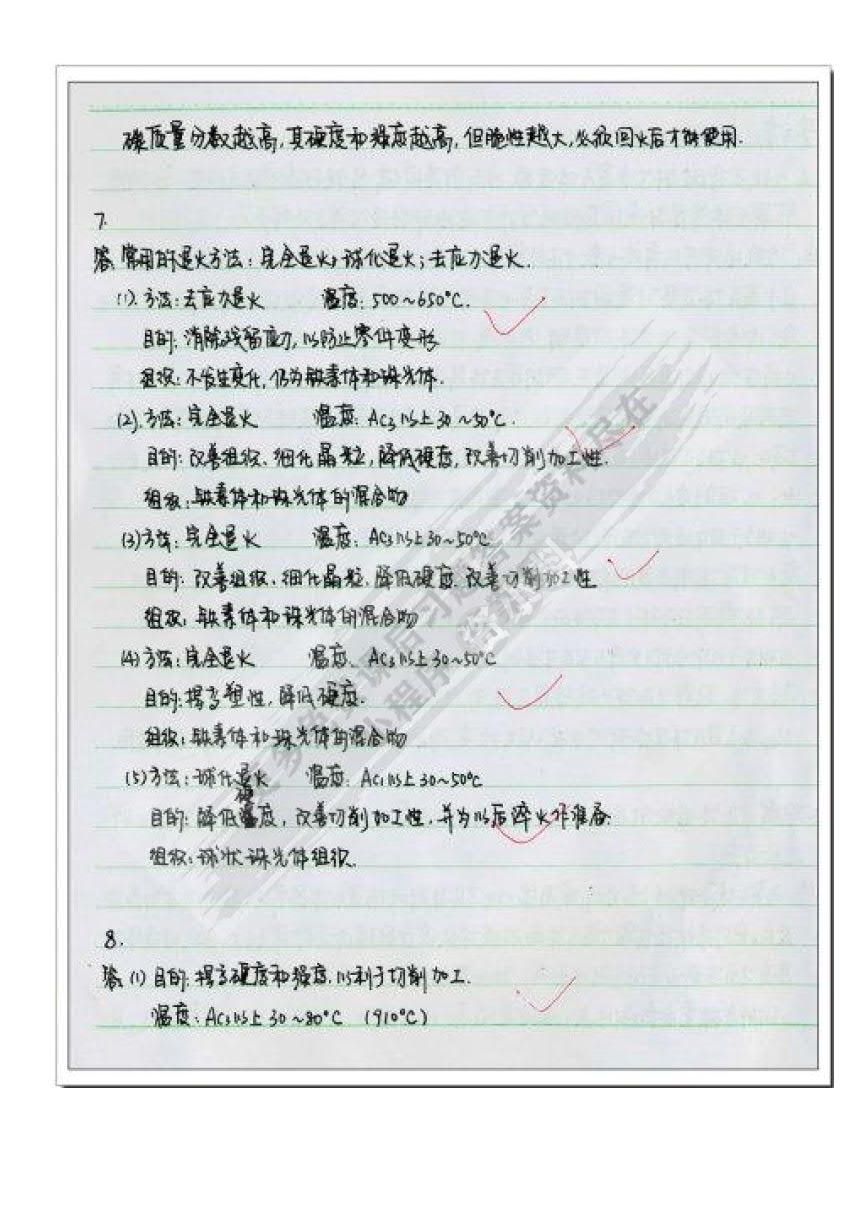 碳质量分数越高,其硬度和强度越高,但脆性越大,必须回火后才能使用.
7.
答:常用的退火方法:完全退火;球化退火;去应力退火.
(1).方法:去应力退火 温度:500~650°C.
目的:消除残留应力,以防止零件变形
组织:不发生变化,仍为铁素体和珠光体.
(2).方法:完全退火 温度:Ac3以上30~50°C.
目的:改善组织、细化晶粒,降低硬度,改善切削加工性.
组织:铁素体和珠光体的混合物
(3)方法:完全退火 温度:Ac3以上30~50°C
目的:改善组织、细化晶粒、降低硬度、改善切削加工性
组织:铁素体和珠光体的混合物
(4)方法:完全退火 温度、Ac3以上30~50°C
目的:提高塑性,降低硬度.
组织:铁素体和珠光体的混合物
(5)方法:球化退火 温度:Ac1以上30~50°C
目的:降低硬度,改善切削加工性.并为以后淬火作准备.
组织:球状珠光体组织.
8.
答:(1)目的:提高硬度和强度.以利于切削加工.
温度:Ac3以上30~80°C (910°C)
课后习题答案资料尽在
小程序